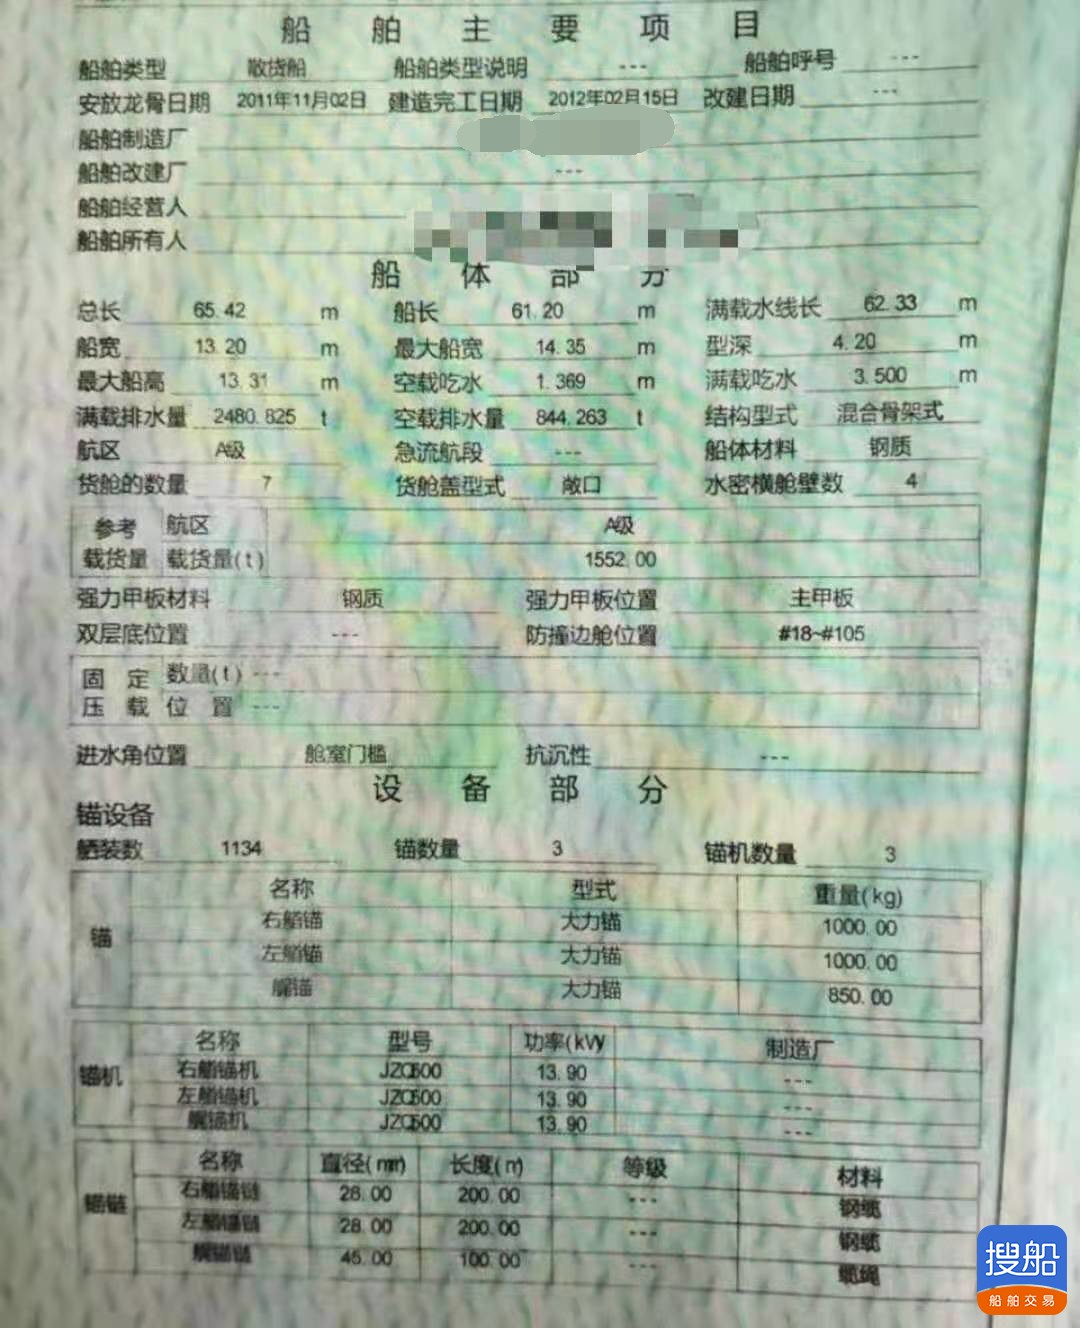 船舶主要项目
船舶类型 散货船 船舶类型说明 --- 船舶呼号 ---
安放龙骨日期 2011年11月02日 建造完工日期 2012年02月15日 改建日期 ---
船舶制造厂
船舶改建厂 ---
船舶经营人
船舶所有人
船体部分
总长 65.42 m 船长 61.20 m 满载水线长 62.33 m
船宽 13.20 m 最大船宽 14.35 m 型深 4.20 m
最大船高 13.31 m 空载吃水 1.369 m 满载吃水 3.500 m
满载排水量 2480.825 t 空载排水量 844.263 t 结构型式 混合骨架式
航区 A级 急流航段 --- 船体材料 钢质
货舱的数量 7 货舱盖型式 敞口 水密横舱壁数 4
参考 航区 A级
载货量 载货量(t) 1552.00
强力甲板材料 钢质 强力甲板位置 主甲板
双层底位置 --- 防撞边舱位置 #18~#105
固定 数量(t) ---
压载 位置 ---
进水角位置 舱室门槛 抗沉性 ---
设备部分
锚设备
舾装数 1134 锚数量 3 锚机数量 3
名称 型式 重量(kg)
右艏锚 大力锚 1000.00
锚
左艏锚 大力锚 1000.00
艉锚 大力锚 850.00
名称 型号 功率(kW) 制造厂
右艏锚机 13.90 ---
锚机
左艏锚机 13.90 ---
艉锚机 13.90 ---
名称 直径(mm) 长度(m) 等级 材料
右艏锚链 28.00 200.00 --- 钢缆
锚链
左艏锚链 28.00 200.00 --- 钢缆
艉锚链 45.00 100.00 --- 缆绳
搜船
船舶交易